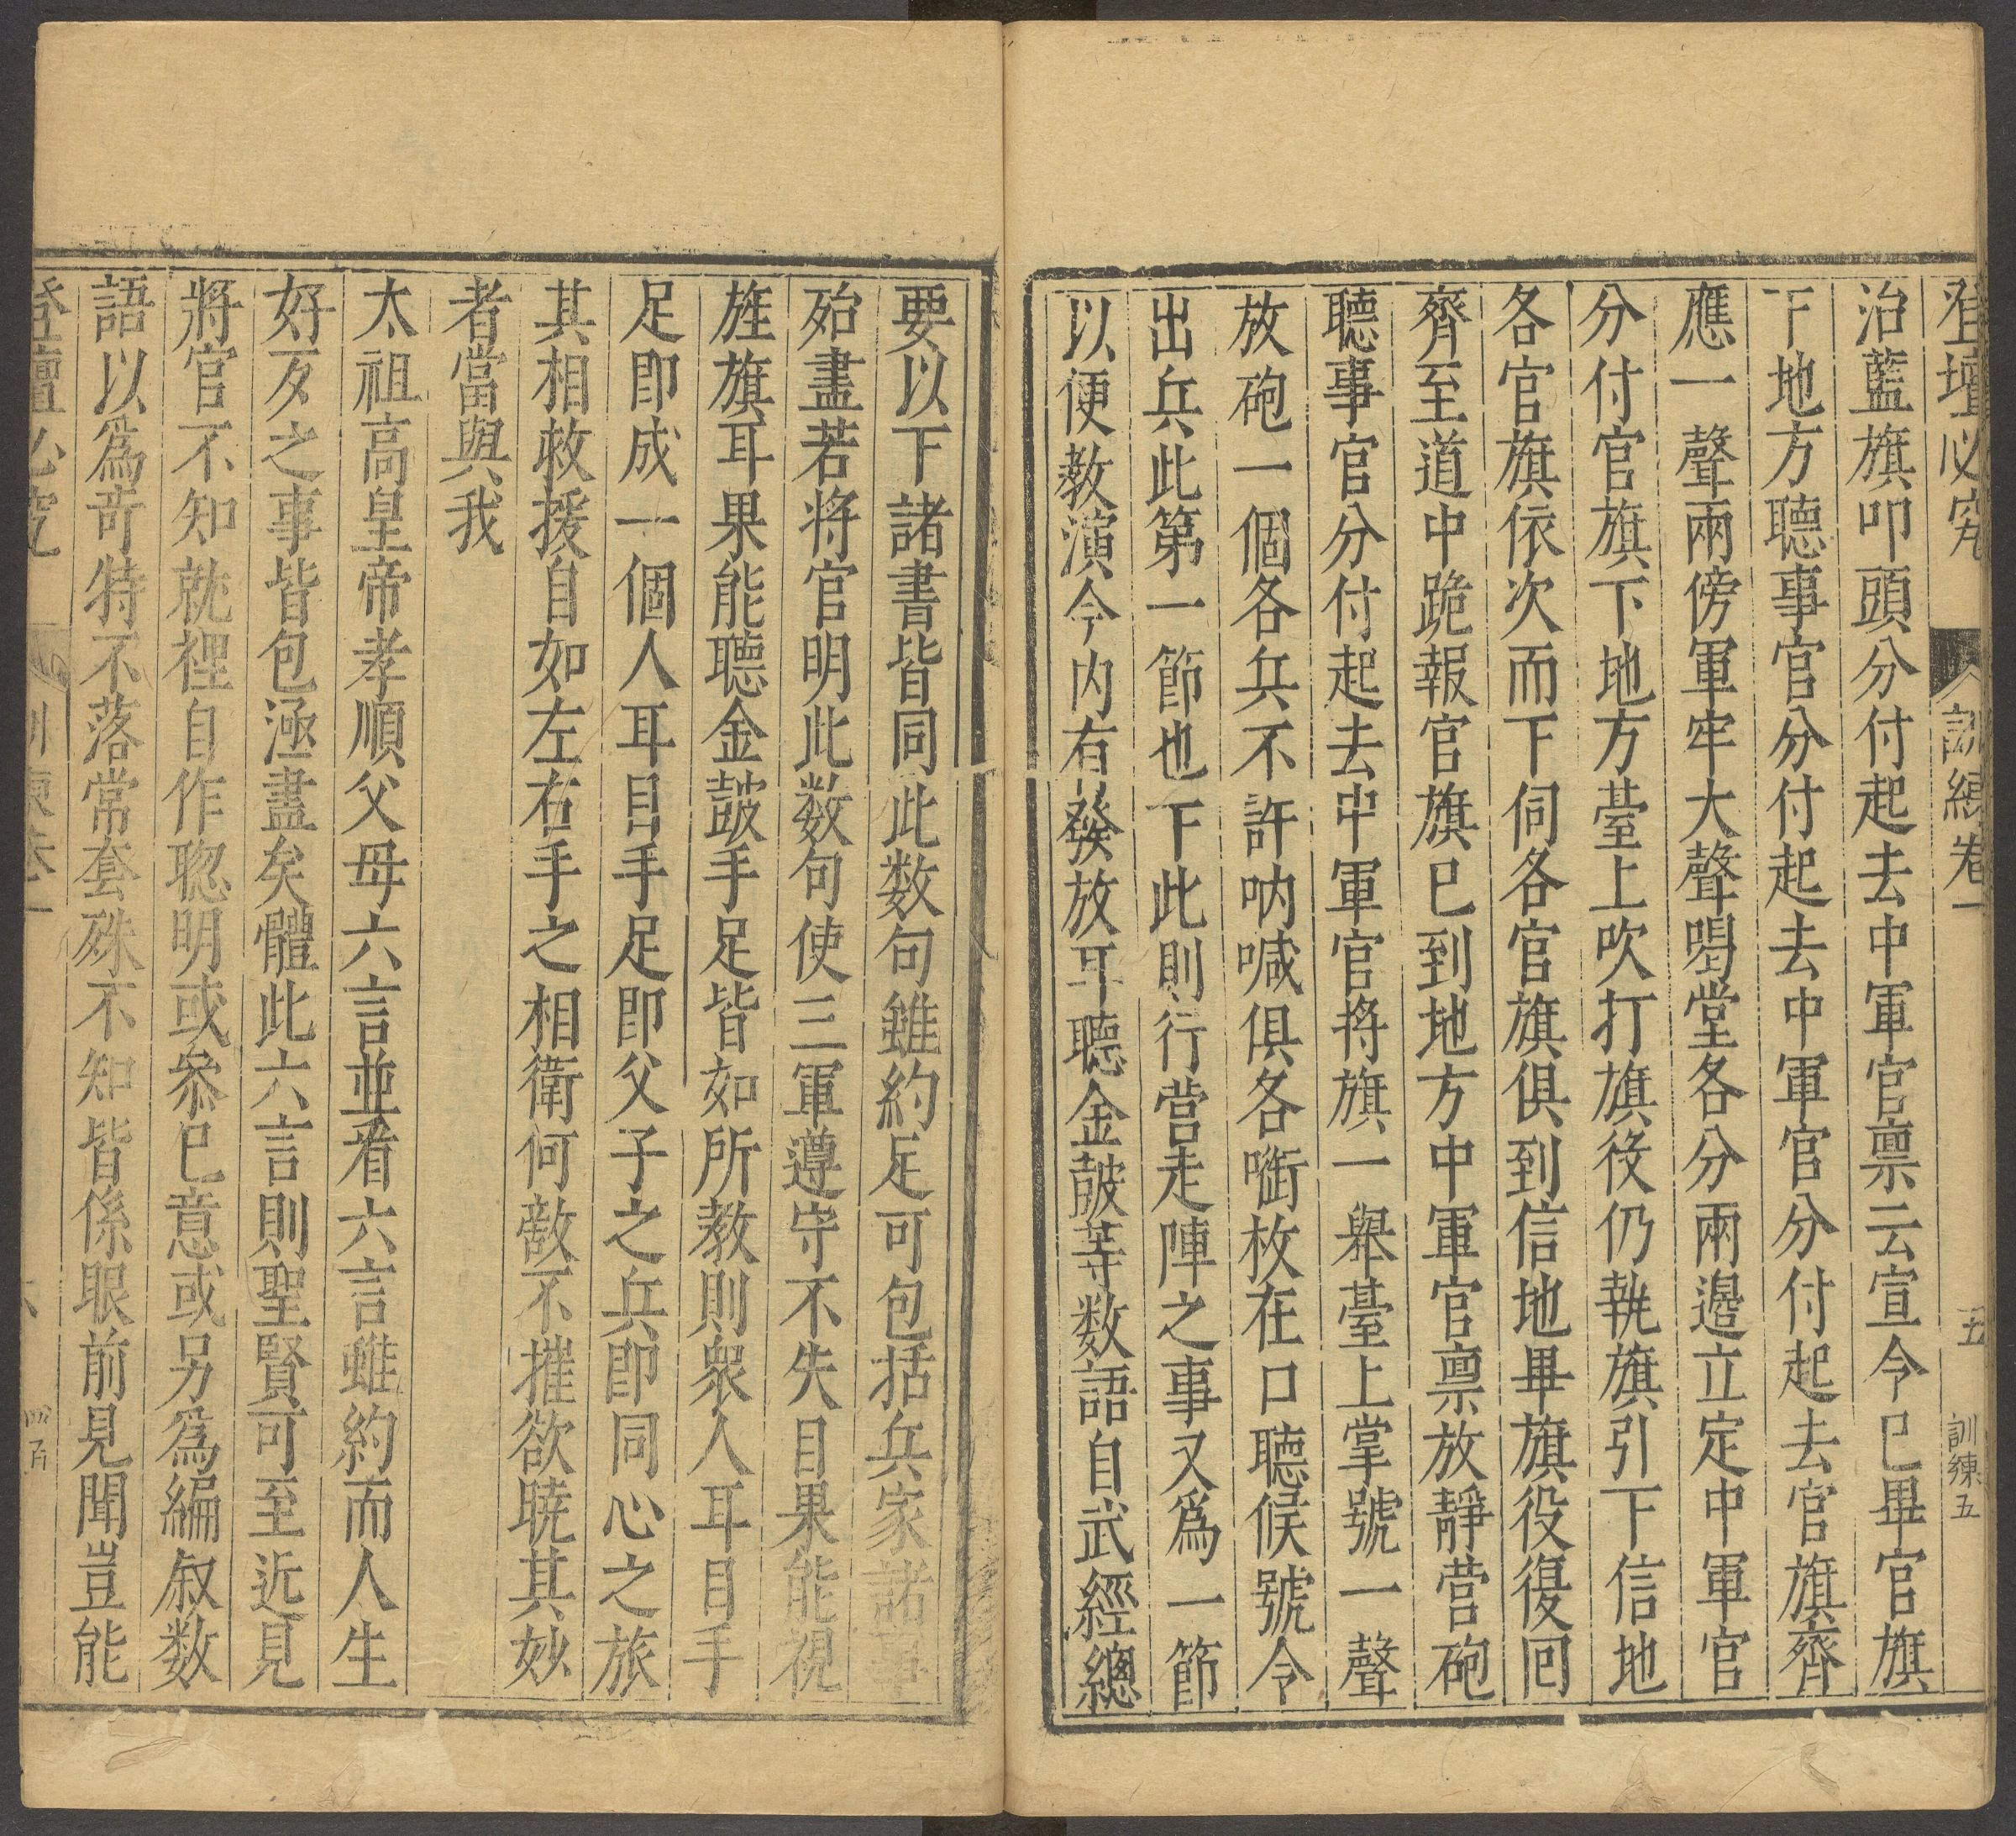 登壇必究 訓練卷一 五 訓練五
治藍旗叩頭分付起去中軍官禀云宣令已畢官旗
下地方聽事官分付起去中軍官分付起去官旗齊
應一聲兩傍軍牢大聲喝堂各分兩邊立定中軍官
分付官旗下地方臺上吹打旗役仍執旗引下信地
各官旗依次而下伺各官旗俱到信地畢旗役復回
齊至道中跪報官旗已到地方中軍官禀放靜营砲
聽事官分付起去中軍官將旗一舉臺上掌號一聲
放砲一個各兵不許吶喊俱各啣枚在口聽候號令
出兵此第一節也下此則行营走陣之事又爲一節
以便教演今内有發放耳聽金皷等数語自武經總
要以下諸書皆同此数句雖約足可包括兵家諸書
殆盡若將官明此数句使三軍遵守不失目果能視
旌旗耳果能聽金皷手足皆如所教則衆人耳目手
足即成一個人耳目手足即父子之兵即同心之旅
其相救援自如左右手之相衛何敵不摧欲曉其妙
者當與我
太祖高皇帝孝順父母六言並看六言雖約而人生
好歹之事皆包涵盡矣體此六言則聖賢可至近見
將官不知就裡自作聰明或叅已意或另爲編叙数
語以爲奇特不落常套殊不知皆係眼前見聞豈能
登壇必究 訓練卷一 六